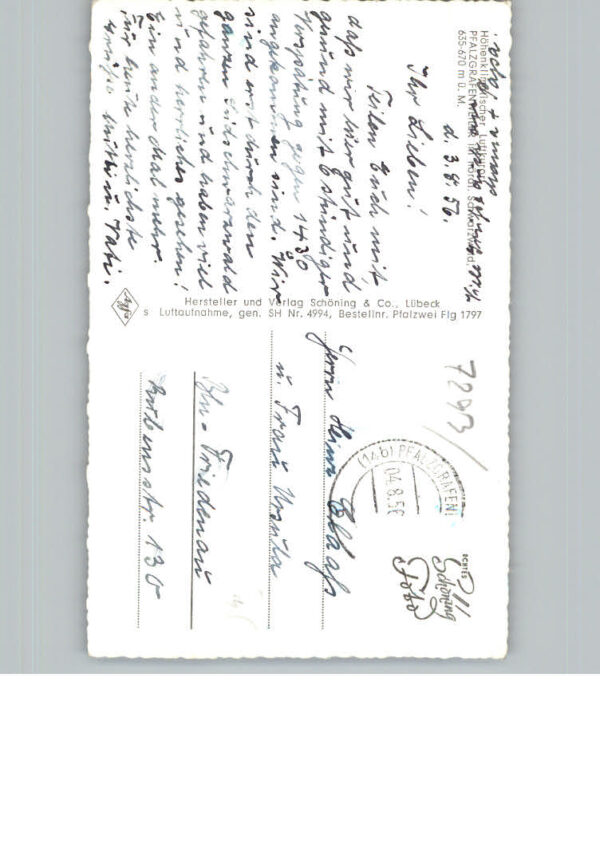 Höhenklimatischer Luftkurort
PFALZGRAFENWEILER im nördl. Schwarzwald
635-670 m ü. M.
d. 3.8.56.
Ihr Lieben!
Teilen Euch mit
daß wir hier gut und
gesund mit 6 stündiger
Verspätung gegen 14 30
angekommen sind. Wir
sind mit durch den
ganzen Südschwarzwald
gefahren und haben viel
und herrliches gesehen!
Ein ander Mal mehr.
Für heute herzlichste
Grüße
Hersteller und Verlag Schöning & Co., Lübeck
s Luftaufnahme, gen. SH Nr. 4994, Bestellnr. Pfalzwei Flg 1797
Agfa
7293/
(14b) PFALZGRAFEN
04.8.56
ECHTES
Schöning
Foto
Herrn Heinz
u. Frau Ursula
Bln-Friedenau
Rubensstr. 130